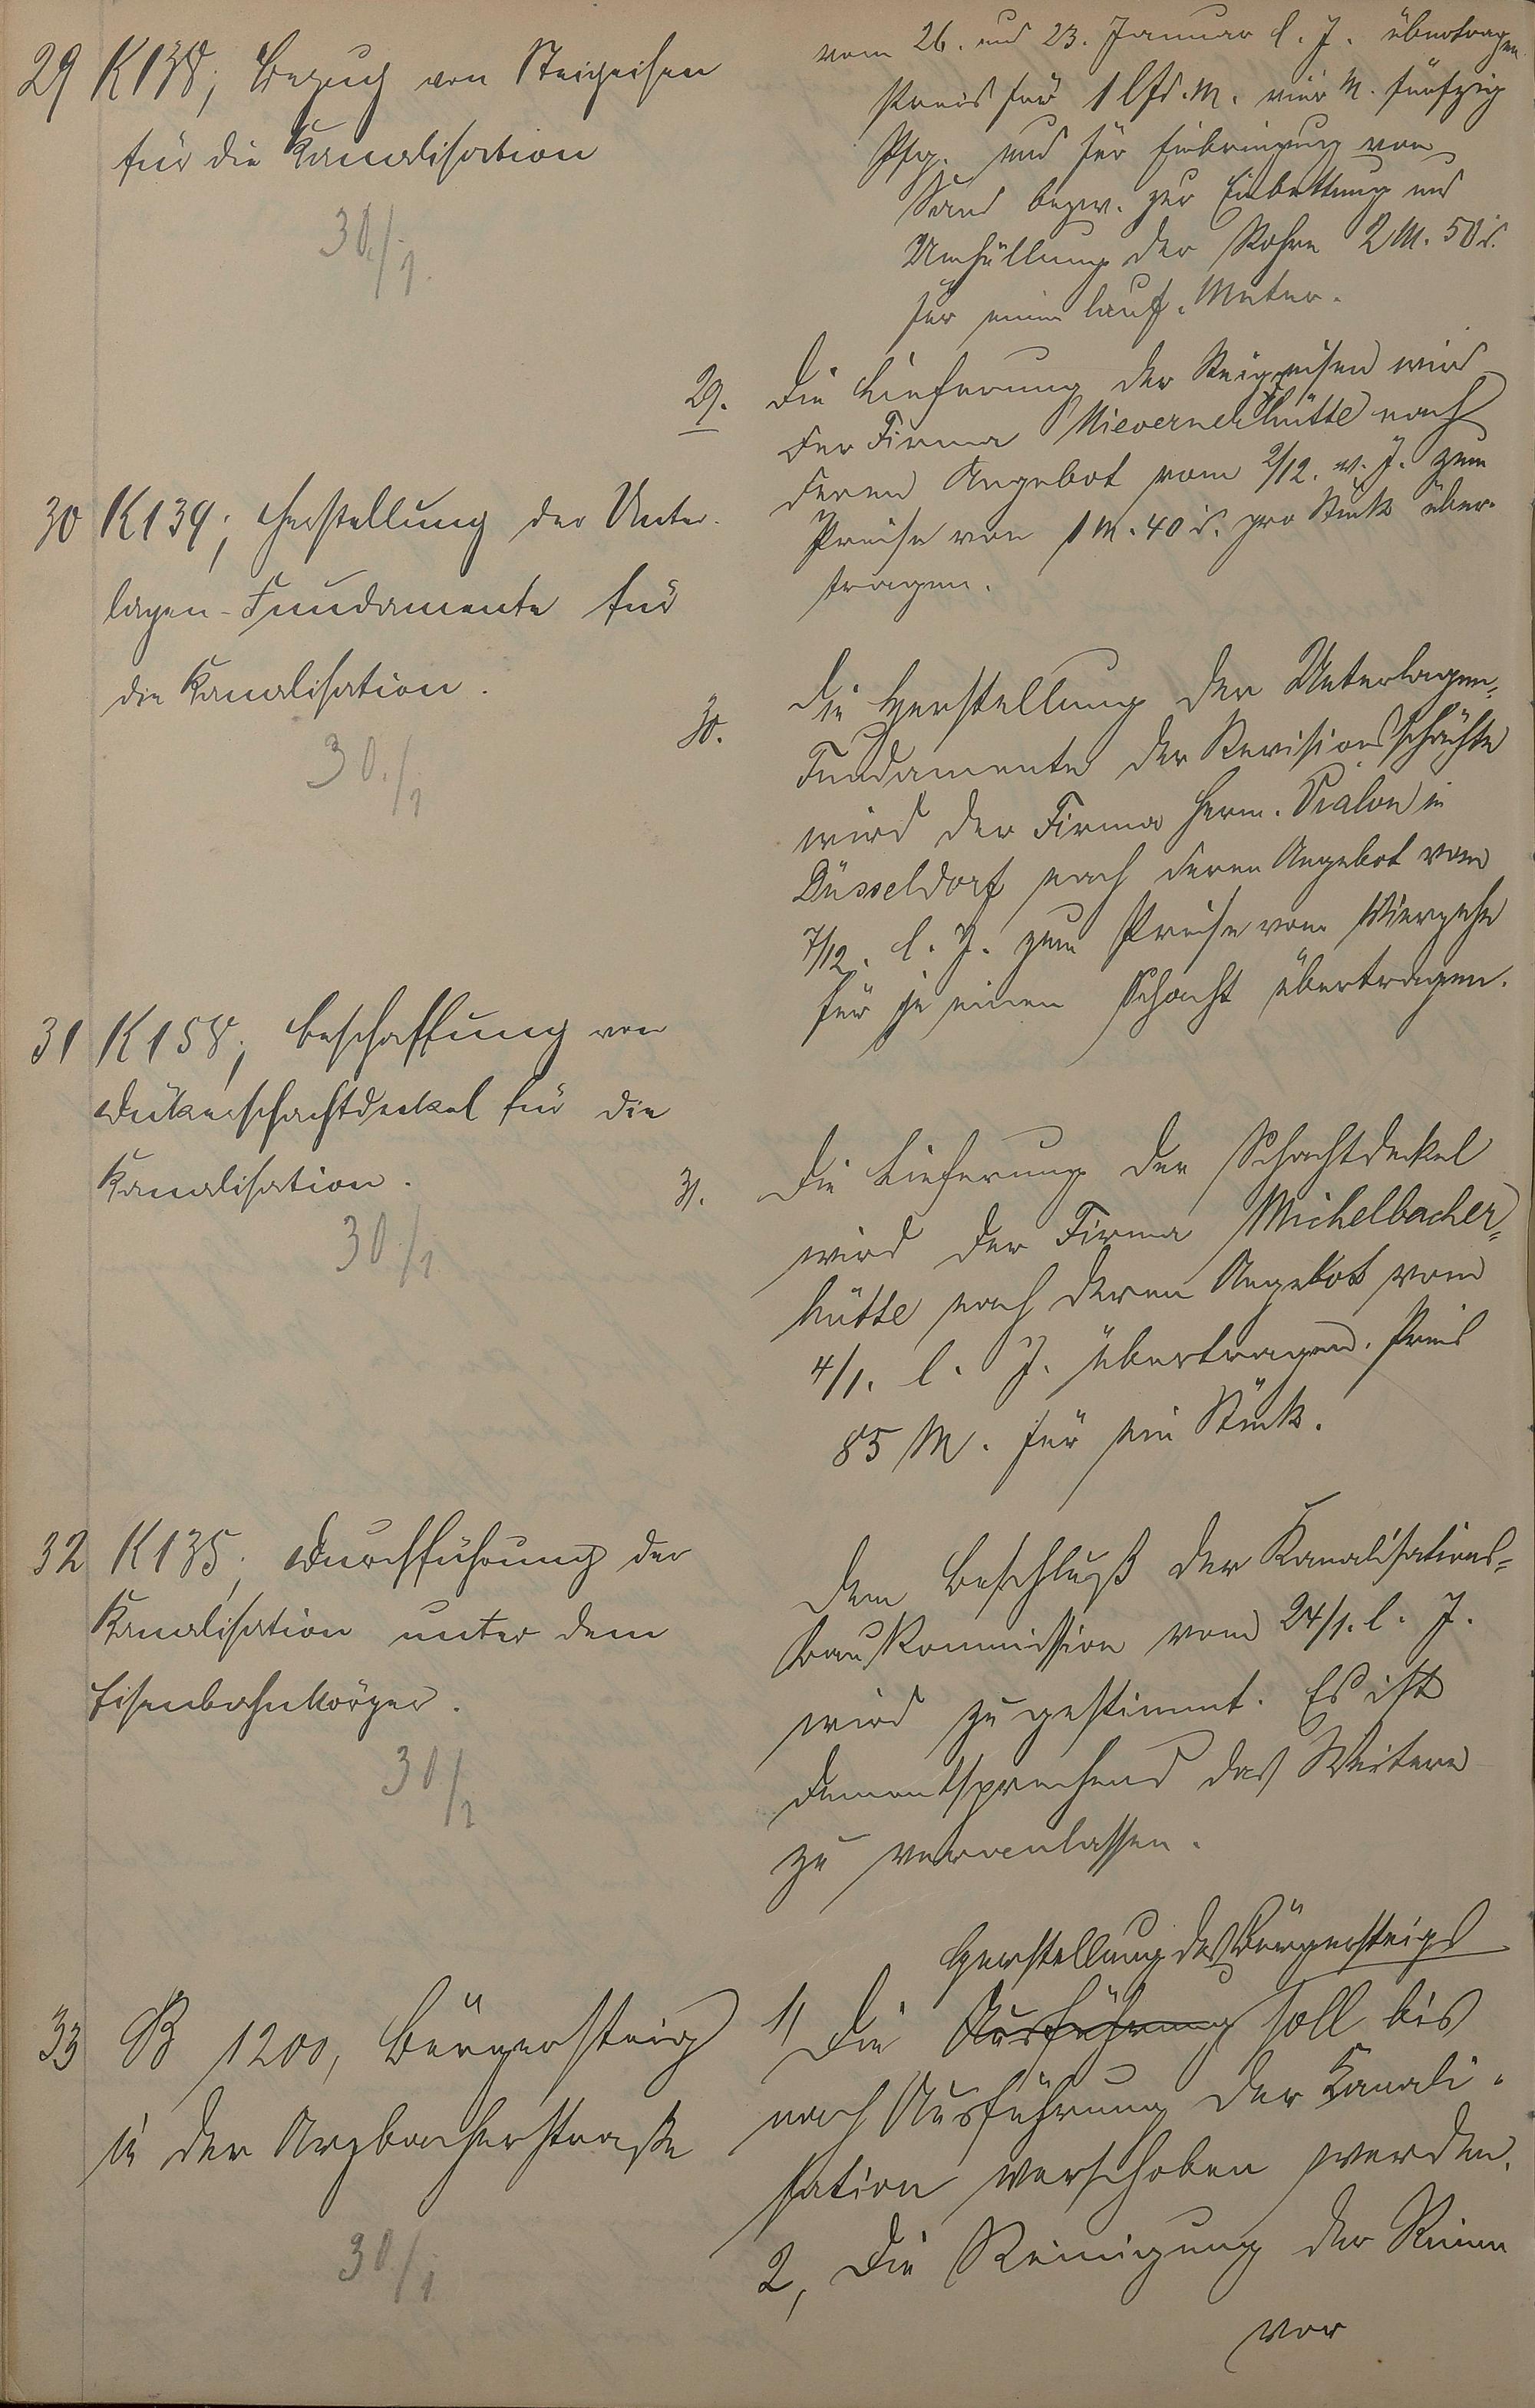 29 K 138, Bezug von Steigeisen
für die Kanalisation
30./1.
vom 26. und 23. Januar l. J. übertragen
Preis für 1 lfd. M. vier M. fünfzig
Pfg. und für Einbringung von
Sand bezw. zur Einbettung und
Umhüllung der Rohre 2 M. 50 d.
für einen lauf. Meter.
29. Die Lieferung der Steigeisen wird
der Firma Nievernerhütte nach
deren Angebot vom 2/12. v. J. zum
Preise von 1 M. 40 d. pro Stück über-
tragen.
30 K 139; Herstellung der Unter-
lagen-Fundamente für
die Kanalisation.
30./1
30. Die Herstellung der Unterlagen-
Fundamente der Revisionsschächte
wird der Firma Herm. Vialon in
Düsseldorf nach deren Angebot vom
7/12. l. J. zum Preise von
für je einen Schacht übertragen.
31 K 158, Beschaffung von
Dückerschachtdeckel für die
Kanalisation.
30/1
31. Die Lieferung der Schachtdeckel
wird der Firma Michelbacher-
hütte nach deren Angebot vom
4/1. l. J. übertragen. Preis
85 M. für ein Stück.
32 K 135, Durchführung der
Kanalisation unter dem
Eisenbahnkörper.
30/1
Dem Beschluß der Kanalisations-
bau Kommission vom 24/1. l. J.
wird zugestimmt. Es ist
dementsprechend das Weitere
zu veranlassen.
33 B 1200, Bürgersteig
in der Arzbacherstraße
30./1
Herstellung des Bürgersteigs
1) Die Ausführung soll bis
nach Ausführung der Kanali-
sation verschoben werden.
2, Die Reinigung der Rinne
vor